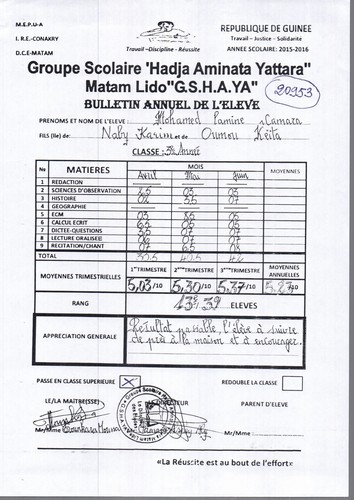 M.E.P.U-A
REPUBLIQUE DE GUINEE
I. R.E.-CONAKRY
Travail – Justice - Solidarité
D.C.E-MATAM
Travail –Discipline - Réussite
ANNEE SCOLAIRE: 2015-2016
Groupe Scolaire 'Hadja Aminata Yattara"
Matam Lido"G.S.H.A.YA"
20953
BULLETIN ANNUEL DE L'ELEVE
PRENOMS ET NOM DE L'ELEVE : Mohamed Lamine Camara
FILS (lle) de: Naby Karim et de Oumou Keita
CLASSE : 3è Année
No MATIERES MOIS MOYENNES
Avril Mai Juin
1 REDACTION
2 SCIENCES D'OBSERVATION 03 03
3 HISTOIRE 02 35 07
4 GEOGRAPHIE
5 ECM 03 85 05
6 CALCUL ECRIT 05 05
7 DICTEE-QUESTIONS 35 07 07
8 LECTURE ORALISEE 07 07
9 RECITATION/CHANT 07 65 08
TOTAL 42
MOYENNES TRIMESTRIELLES 1er TRIMESTRE 2ème TRIMESTRE 3ème TRIMESTRE MOYENNES ANNUELLES
5,03/10 5,30/10 5,37/10 5,23/10
RANG 13è 39 ELEVES
APPRECIATION GENERALE Résultat passable, l'élève à suivre
de près à la maison et à encourager.
PASSE EN CLASSE SUPERIEURE X REDOUBLE LA CLASSE
LE/LA MAITRE(SSE) DIRECTEUR PARENT D'ELEVE
Groupe Scolaire Hadja
Mr/Mme Mr/Mme Mr/Mme :
«La Réussite est au bout de l'effort»